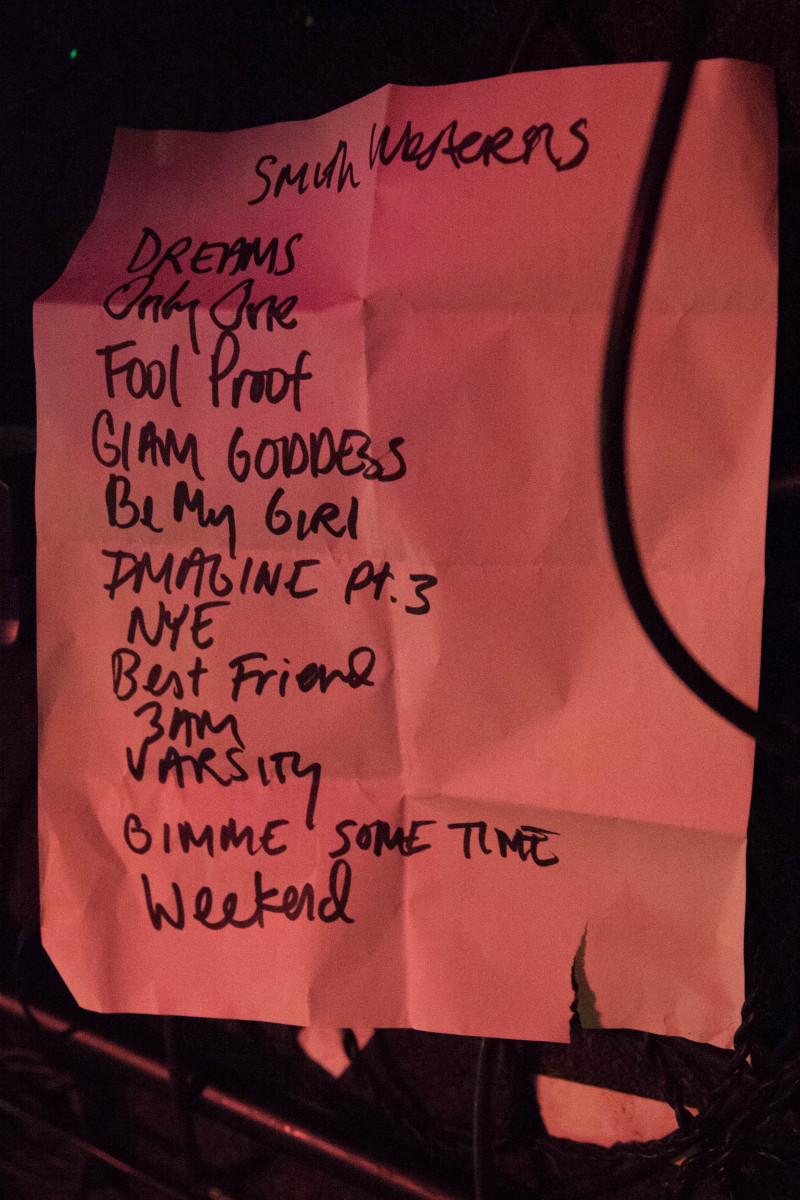 Smith Westerns
DREAMS
Only One
Fool Proof
GlAM GODDESS
Be My GIRl
IMAGINE Pt.3
NYE
Best Friend
3AM
VARSITY
GIMME SOME TIME
Weekend